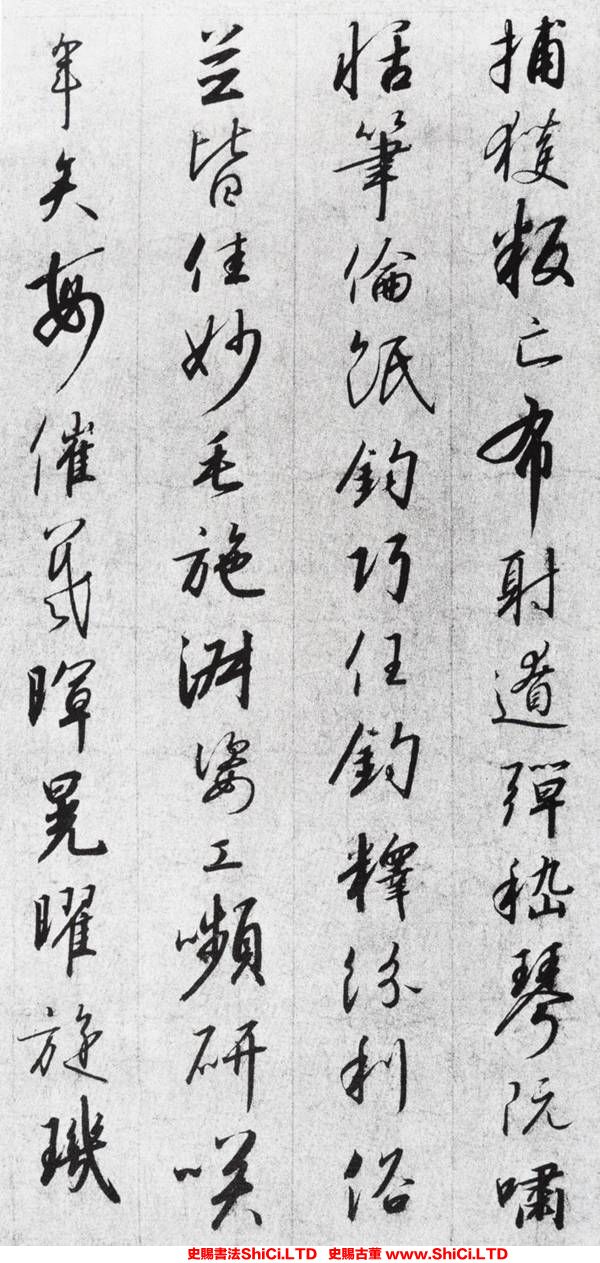 捕獲叛亡布射遼彈嵇琴阮嘯
恬筆倫紙鈞巧任釣釋紛利俗
並皆佳妙毛施淑姿工嚬研咲
年矢每催羲暉晃曜旋璣
史賜書法ShiCi.LTD 史賜古董 www.ShiCi.LTD